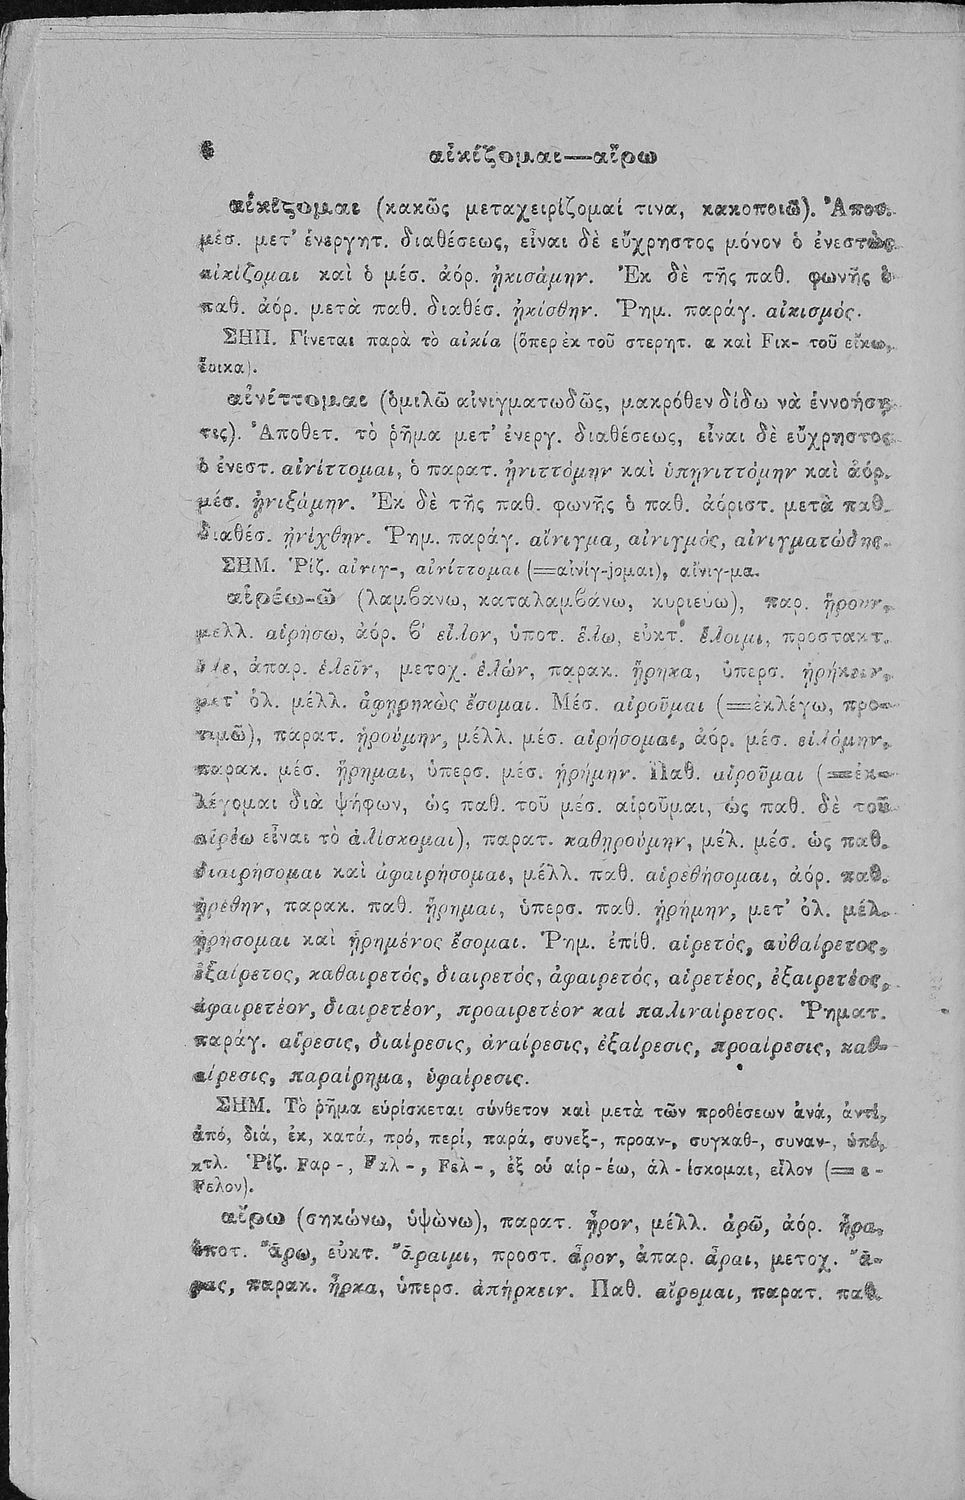 6 αἰκίζομαι—αἴρω
αἰκίζομαι (κακῶς μεταχειρίζομαί τινα, κακοποιῶ). Ἀποθ.
μέσ. μετ' ἐνεργητ. διαθέσεως, εἶναι δὲ εὔχρηστος μόνον ὁ ἐνεστὼς
αἰκίζομαι καὶ ὁ μέσ. ἀόρ. ᾐκισάμην. Ἐκ δὲ τῆς παθ. φωνῆς ὁ
παθ. ἀόρ. μετὰ παθ. διαθέσ. ᾐκίσθην. Ῥημ. παράγ. αἰκισμός.
ΣΗΠ. Γίνεται παρὰ τὸ αἰκία (ὅπερ ἐκ τοῦ στερητ. α καὶ Fικ- τοῦ εἴκω,
ἔοικα).
αἰνίττομαι (ὁμιλῶ αἰνιγματωδῶς, μακρόθεν δίδω νὰ ἐννοήσῃ
τις). Ἀποθετ. τὸ ῥῆμα μετ' ἐνεργ. διαθέσεως, εἶναι δὲ εὔχρηστος
ὁ ἐνεστ. αἰνίττομαι, ὁ παρατ. ᾐνιττόμην καὶ ὑπῃνιττόμην καὶ ἀόρ.
μέσ. ᾐνιξάμην. Ἐκ δὲ τῆς παθ. φωνῆς ὁ παθ. ἀόριστ. μετὰ παθ.
διαθέσ. ᾐνίχθην. Ῥημ. παράγ. αἴνιγμα, αἰνιγμός, αἰνιγματώδης.
ΣΗΜ. Ῥίζ. αἰνιγ-, αἰνίττομαι (=αἰνίγ-jομαι), αἴνιγ-μα.
αἱρέω-ῶ (λαμβάνω, καταλαμβάνω, κυριεύω), παρ. ᾕρουν,
μέλλ. αἱρήσω, ἀόρ. β' εἷλον, ὑποτ. ἕλω, εὐκτ. ἕλοιμι, προστακτ.
ἕλε, ἀπαρ. ἑλεῖν, μετοχ. ἑλών, παρακ. ᾕρηκα, ὑπερσ. ᾑρήκειν,
μετ' ὁλ. μέλλ. ἀφῃρηκὼς ἔσομαι. Μέσ. αἱροῦμαι (=ἐκλέγω, προ-
τιμῶ), παρατ. ᾑρούμην, μέλλ. μέσ. αἱρήσομαι, ἀόρ. μέσ. εἱλόμην,
παρακ. μέσ. ᾕρημαι, ὑπερσ. μέσ. ᾑρήμην. Παθ. αἱροῦμαι (=ἐκ-
λέγομαι διὰ ψήφων, ὡς παθ. τοῦ μέσ. αἱροῦμαι, ὡς παθ. δὲ τοῦ
αἱρέω εἶναι τὸ ἁλίσκομαι), παρατ. καθῃρούμην, μέλ. μέσ. ὡς παθ.
διαιρήσομαι καὶ ἀφαιρήσομαι, μέλλ. παθ. αἱρεθήσομαι, ἀόρ. παθ.
ᾑρέθην, παρακ. παθ. ᾕρημαι, ὑπερσ. παθ. ᾑρήμην, μετ' ὁλ. μέλ.
ᾑρήσομαι καὶ ᾑρημένος ἔσομαι. Ῥημ. ἐπίθ. αἱρετός, αὐθαίρετος,
ἐξαίρετος, καθαιρετός, διαιρετός, ἀφαιρετός, αἱρετέος, ἐξαιρετέος,
ἀφαιρετέον, διαιρετέον, προαιρετέον καὶ παλιναίρετος. Ῥηματ.
παράγ. αἵρεσις, διαίρεσις, ἀναίρεσις, ἐξαίρεσις, προαίρεσις, καθ-
αίρεσις, παραίρημα, ὑφαίρεσις.
ΣΗΜ. Τὸ ῥῆμα εὑρίσκεται σύνθετον καὶ μετὰ τῶν προθέσεων ἀνά, ἀντί,
ἀπό, διά, ἐκ, κατά, πρό, περί, παρά, συνεξ-, προαν-, συγκαθ-, συναν-, ὑπό,
κτλ. Ῥίζ. Fαρ-, Fαλ-, Fελ-, ἐξ οὗ αἱρ-έω, ἁλ-ίσκομαι, εἷλον (=ε-
Fελον).
αἴρω (σηκώνω, ὑψώνω), παρατ. ᾖρον, μέλλ. ἀρῶ, ἀόρ. ἦρα,
ὑποτ. ἄρω, εὐκτ. ἄραιμι, προστ. ἆρον, ἀπαρ. ἆραι, μετοχ. ἄ-
ρας, παρακ. ἦρκα, ὑπερσ. ἀπήρκειν. Παθ. αἴρομαι, παρατ. παθ.